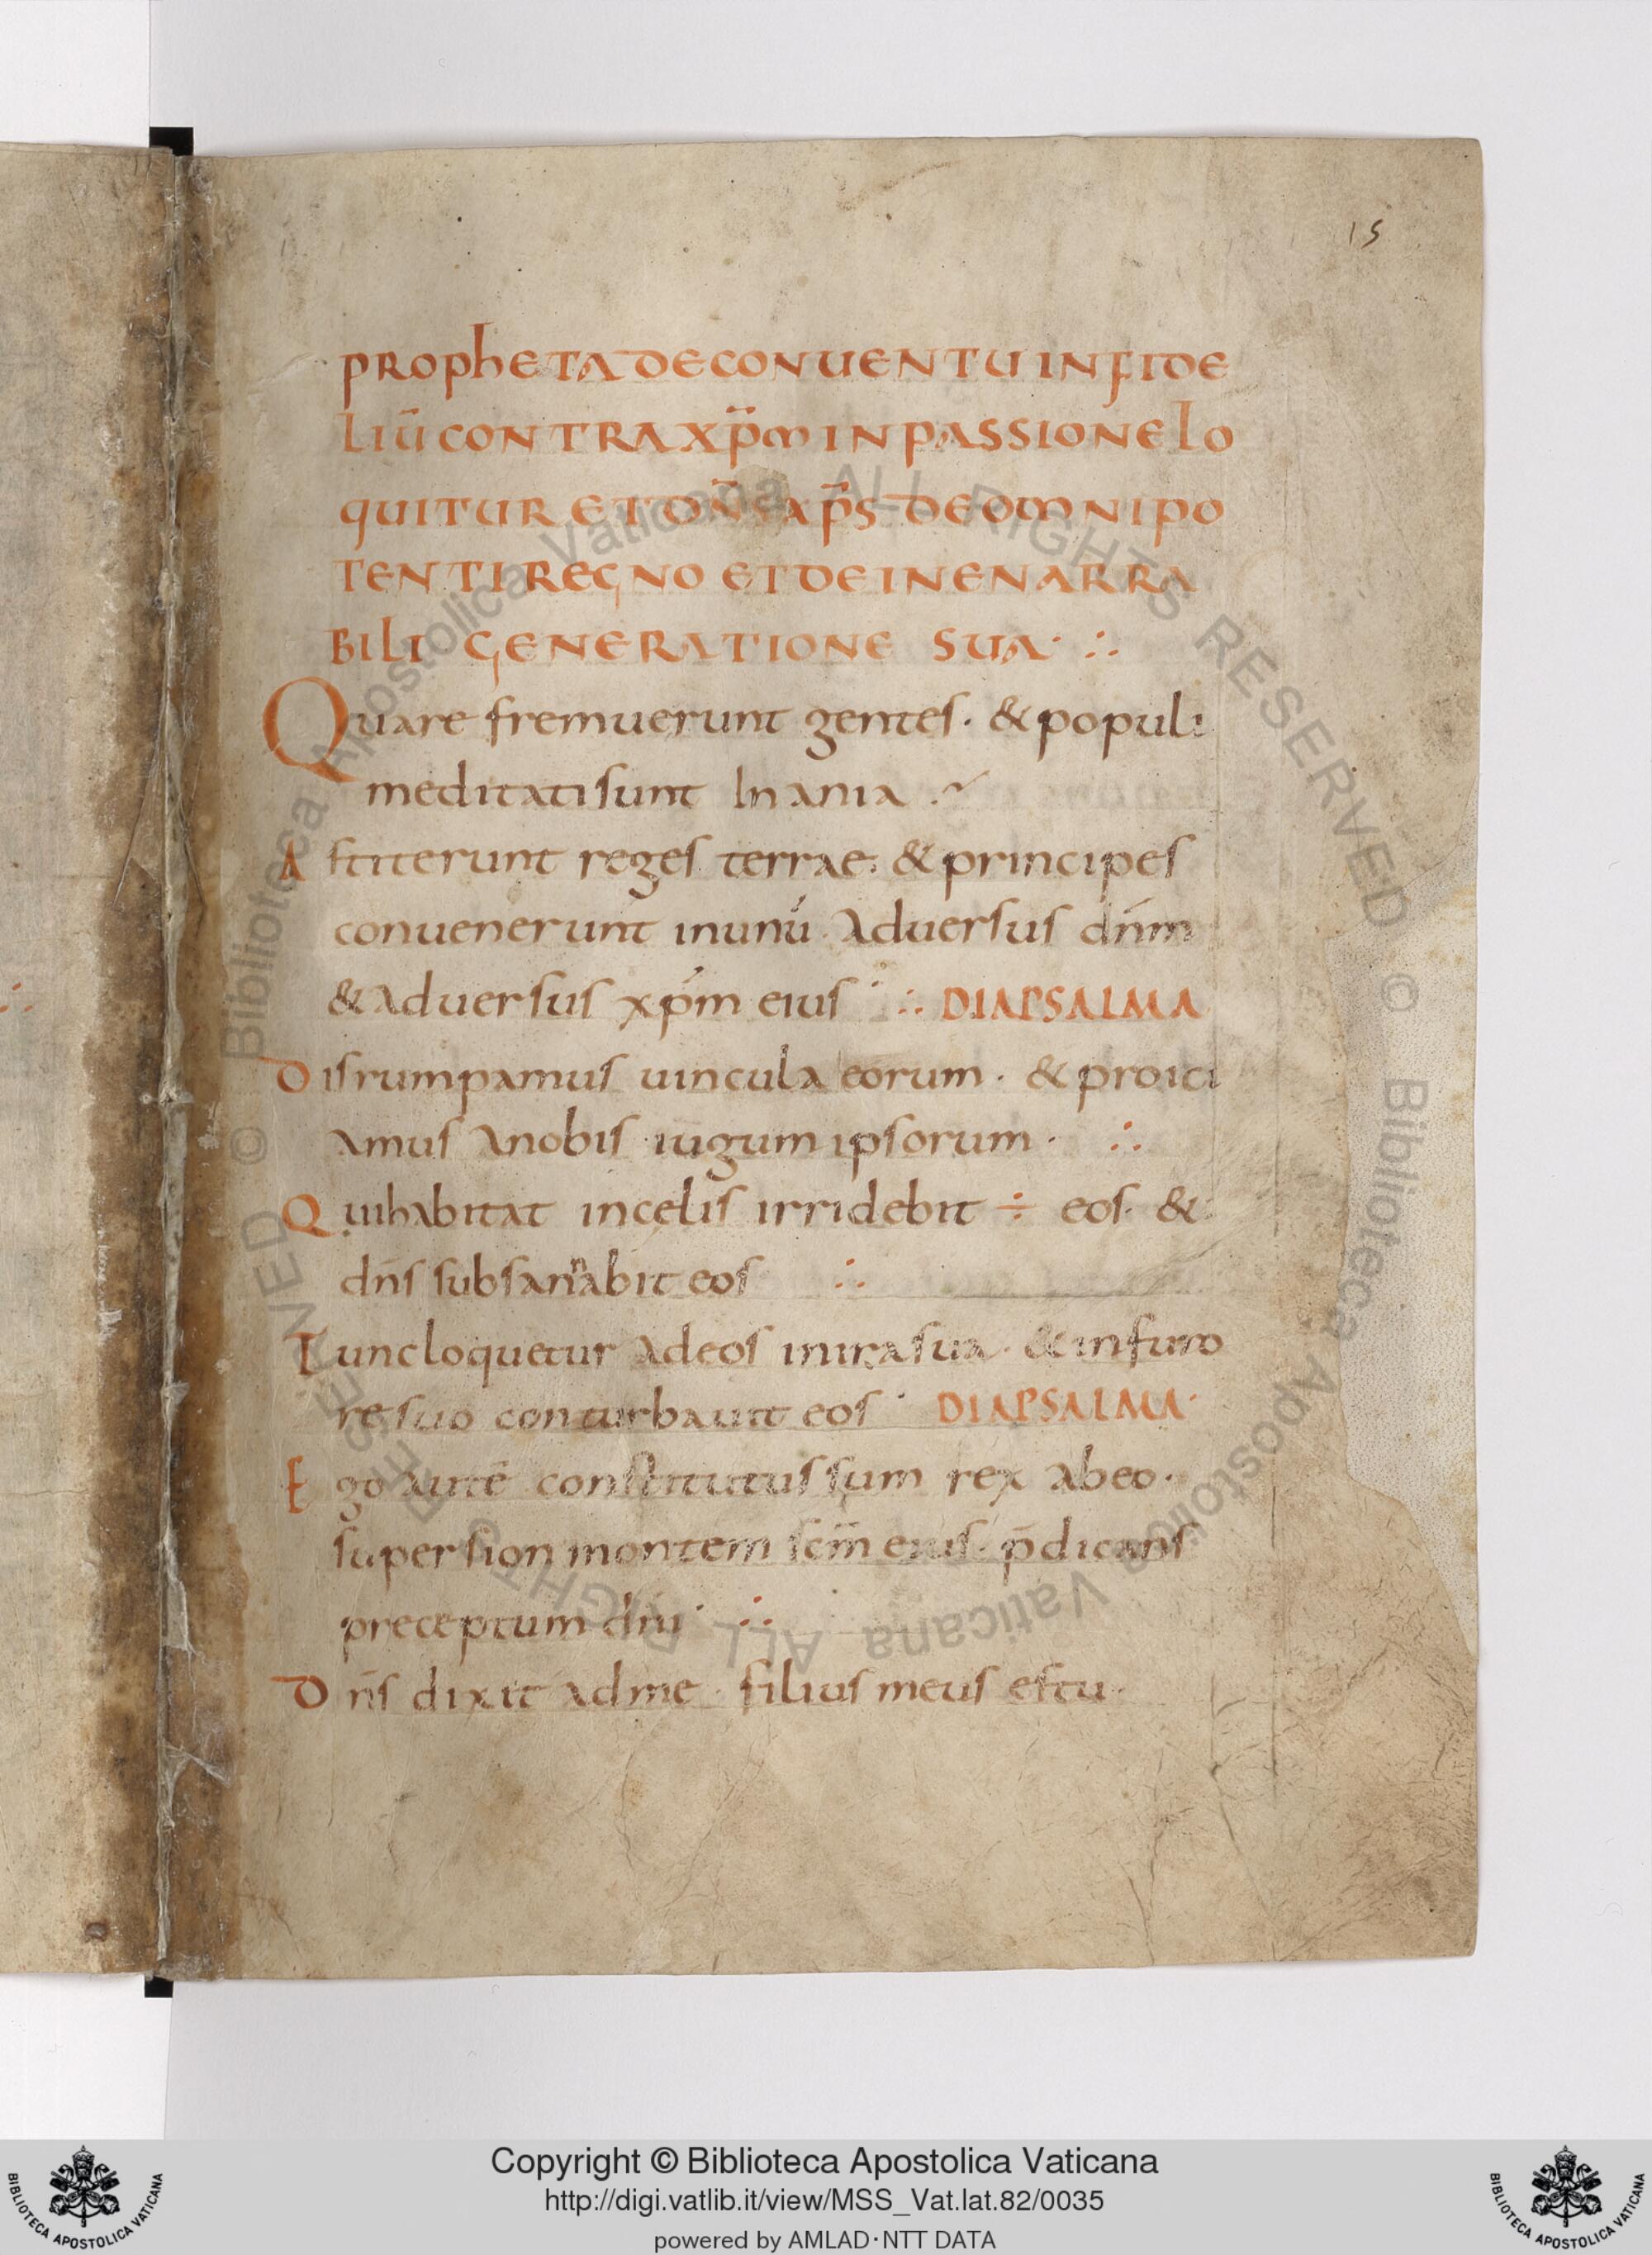 15
PROPhETA DE CONUENTU INFIDE
LIŪ CONTRA XP̄M IN PASSIONE LO
QUITUR ET DN̄S XP̄S DE OMNIPO
TENTI REGNO ET DE INENARRA
BILI GENERATIONE SUA· ∴
Quare fremuerunt gentes· & populi
meditati sunt Inania .~
Astiterunt reges terrae. & principes
conuenerunt inunū· aduersus dn̄m
& aduersus xp̄m eius · ∴ DIAPSALMA
Disrumpamus uincula eorum · & proici
amus anobis iugum ipsorum · ∴
Quihabitat incęlis irridebit ÷ eos· &
dn̄s subsannabit eos ∴
Tuncloquetur adeos inirasua· & infuro
re suo conturbauit eos · DIAPSALMA·
Ego autē constitutus sum rex abeo·
super sion montem scm̄ eius· p̄dicans
preceptum dn̄i · ∴
Dn̄s dixit adme · filius meus estu·
Copyright © Biblioteca Apostolica Vaticana
http://digi.vatlib.it/view/MSS_Vat.lat.82/0035
powered by AMLAD·NTT DATA
BIBLIOTECA APOSTOLICA VATICANA
BIBLIOTECA APOSTOLICA VATICANA
© Biblioteca Apostolica Vaticana ALL RIGHTS RESERVED © Biblioteca Apostolica Vaticana ALL RIGHTS RESERVED